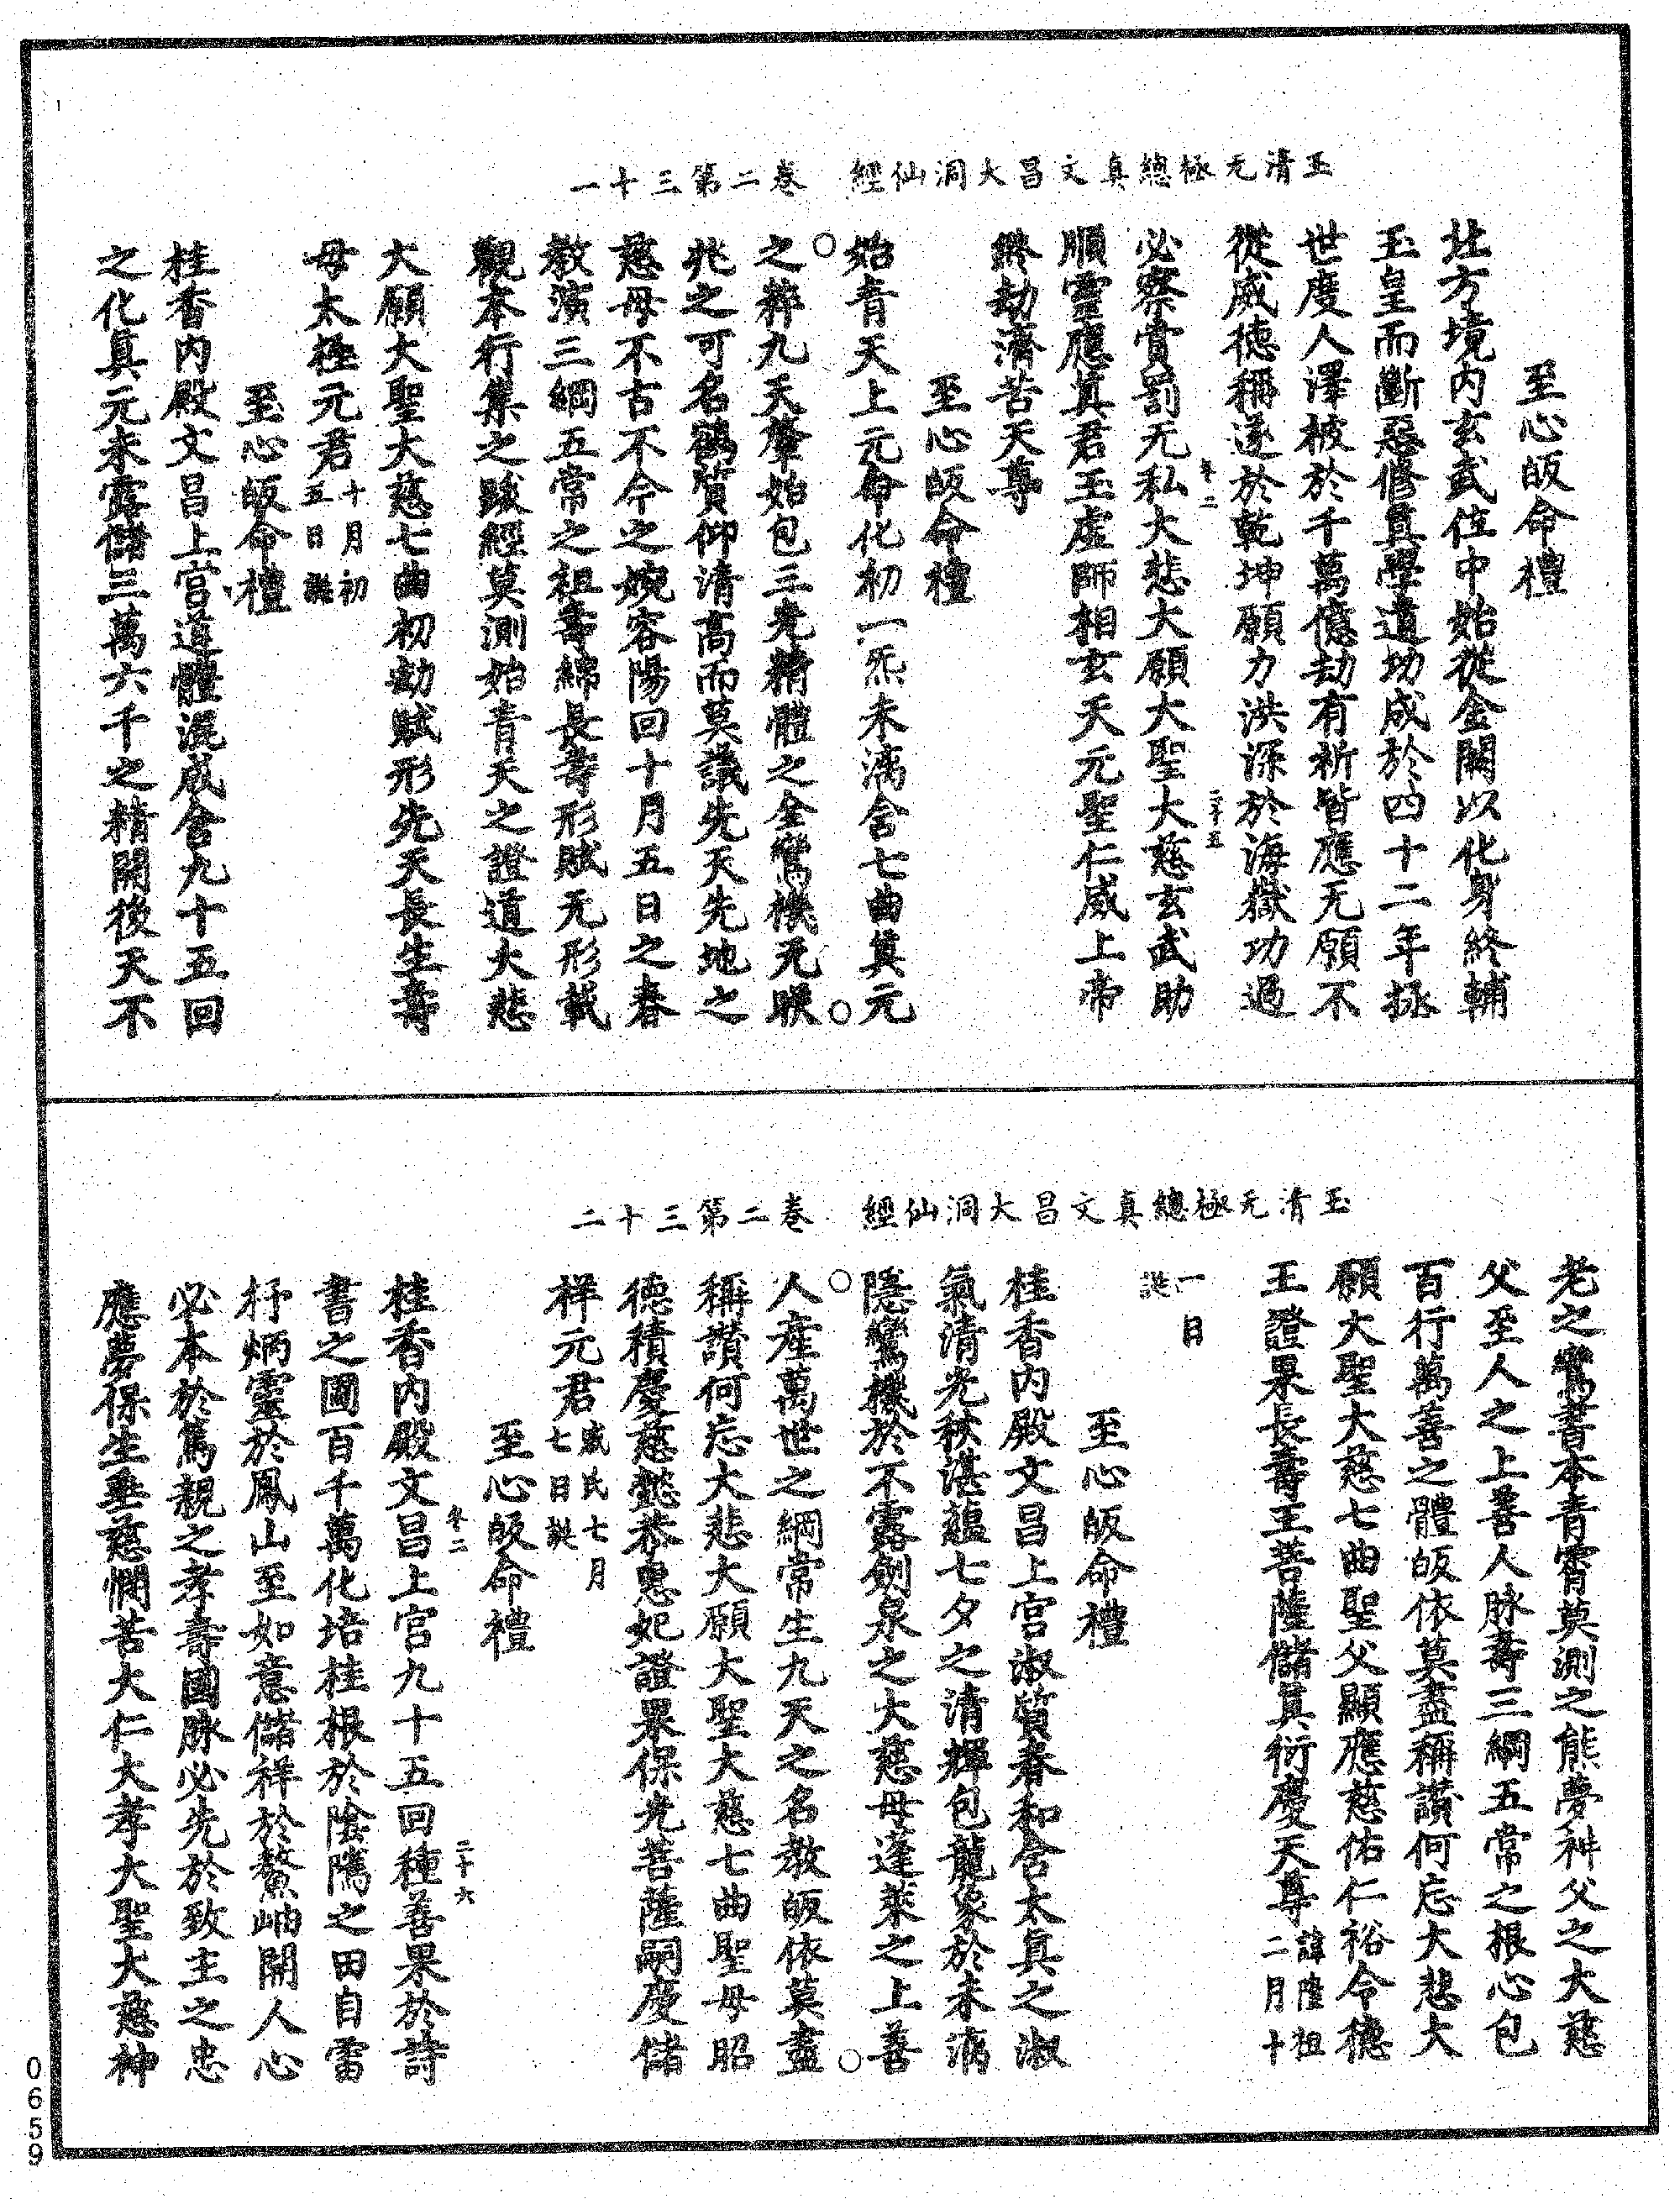 玉清无極總真文昌大洞仙經　卷二第三十一
至心皈命禮
北方境内玄武位中始從金闕以化身終輔
玉皇而斷惡修真學道功成於四十二年拯
世度人澤被於千萬億劫有祈皆應无願不
從威德稱遂於乾坤願力洪深於海嶽功過
必察賞罰无私大悲大願大聖大慈玄武助
卷二　二十五
順靈應真君玉虛師相玄天元聖仁威上帝
終劫濟苦天尊
至心皈命禮
始青天上元命化初一炁未漓含七曲真元
○之粹九天肇始包三光精體之全鸞機无朕○
兆之可名鶴質仰清高而莫議先天先地之
慈母不古不今之婉容陽回十月五日之春
教演三綱五常之祖壽綿長壽形賦无形載
觀本行集之跋經莫測始青天之證道大悲
大願大聖大慈七曲初劫賦形先天長生壽
母太極元君十月初五日誕
至心皈命禮
桂香内殿文昌上宮道體混成含九十五回
之化真元未露儲三萬六千之精開後天不
玉清无極總真文昌大洞仙經　卷二第三十二
老之鸞書本青霄莫測之熊夢神父之大慈
父至人之上善人脉壽三綱五常之根心包
百行萬善之體皈依莫盡稱讚何忘大悲大
願大聖大慈七曲聖父顯應慈佑仁裕令德
王證果長壽王菩薩儲真衍慶天尊諱陸祖二月十
一日誕
至心皈命禮
桂香内殿文昌上宮淑質春和含太真之淑
氣清光秋湛蘊七夕之清輝包龍象於未漓
○隱鸞機於不露劍泉之大慈母蓬萊之上善○
人產萬世之綱常生九天之名教皈依莫盡
稱讚何忘大悲大願大聖大慈七曲聖母昭
德積慶慈懿恭惠妃證果保光菩薩嗣慶儲
祥元君戚氏七月七日誕
至心皈命禮
卷二　二十六
桂香内殿文昌上官九十五回種善果於詩
書之圃百千萬化培桂根於陰騭之田自雷
杼炳靈於鳳山至如意儲祥於鰲岫開人心
必本於篤親之孝壽國脉必先於致主之忠
應夢保生垂慈憫苦大仁大孝大聖大慈神
0659